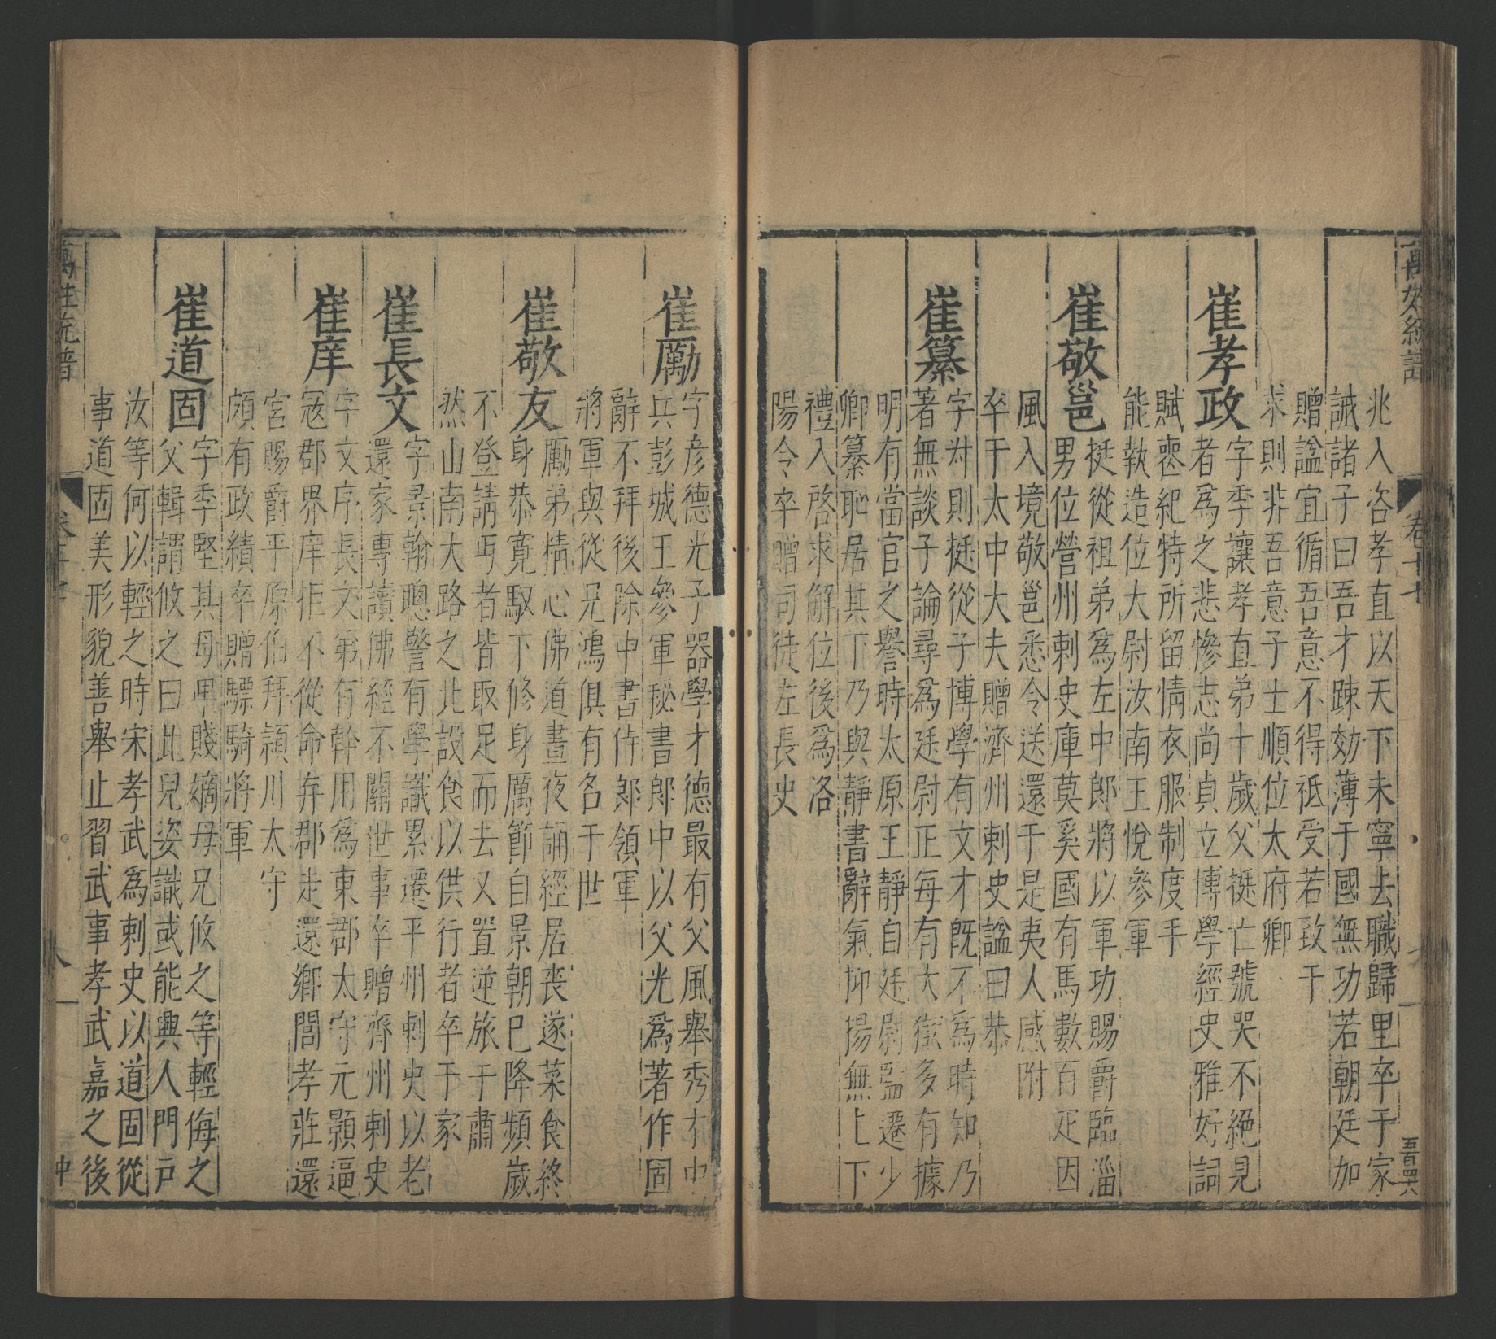 萬姓統譜
卷十七
五百四六
兆入洛孝直以天下未寧去職歸里卒于家
誡諸子曰吾才踈効薄于國無功若朝廷加
贈謚宜循吾意不得祗受若致干
求則非吾意子士順位太府卿
崔孝政
字季讓孝直弟十歲父挺亡號哭不絕見
者為之悲慘志尚貞立博學經史雅好詞
賦喪紀特所留情衣服制度手
能執造位大尉汝南王悅參軍
崔敬邕
挺從祖弟為左中郎將以軍功賜爵臨淄
男位營州刺史庫莫奚國有馬數百疋因
風入境敬邕悉令送還于是夷人感附
卒于太中大夫贈濟州刺史謚曰恭
崔纂
字叔則挺從子博學有文才旣不為時知乃
著無談子論尋為廷尉正每有大獄多有據
明有當官之譽時太原王靜自廷尉監遷少
卿纂恥居其下乃與靜書辭氣抑揚無上下
禮入啓求解位後為洛
陽令卒贈司徒左長史
崔勵
字彦德光子器學才德最有父風舉秀才中
兵彭城王參軍秘書郎中以父光為著作固
辭不拜後除中書侍郎領軍
將軍與從兄鴻俱有名于世
崔敬友
勵弟精心佛道晝夜誦經居喪遂菜食終
身恭寛馭下修身厲節自景朝已降頻歲
不登請丐者皆取足而去又置逆旅于肅
然山南大路之北設食以供行者卒于家
崔長文
字景翰聰警有學識累遷平州刺史以老
還家專讀佛經不關世事卒贈齊州刺史
崔庠
字文序長文弟有幹用為東郡太守元顥逼
冦郡界庠拒不從命弃郡走還鄉閭孝莊還
宮賜爵平原伯拜潁川太守
頗有政績卒贈驃騎將軍
崔道固
字季堅其母甲賤嫡母兄攸之等輕侮之
父輯謂攸之曰此兒姿識或能興人門戸
汝等何以輕之時宋孝武為刺史以道固從
事道固美形貌善舉止習武事孝武嘉之後
萬姓統譜
八
中